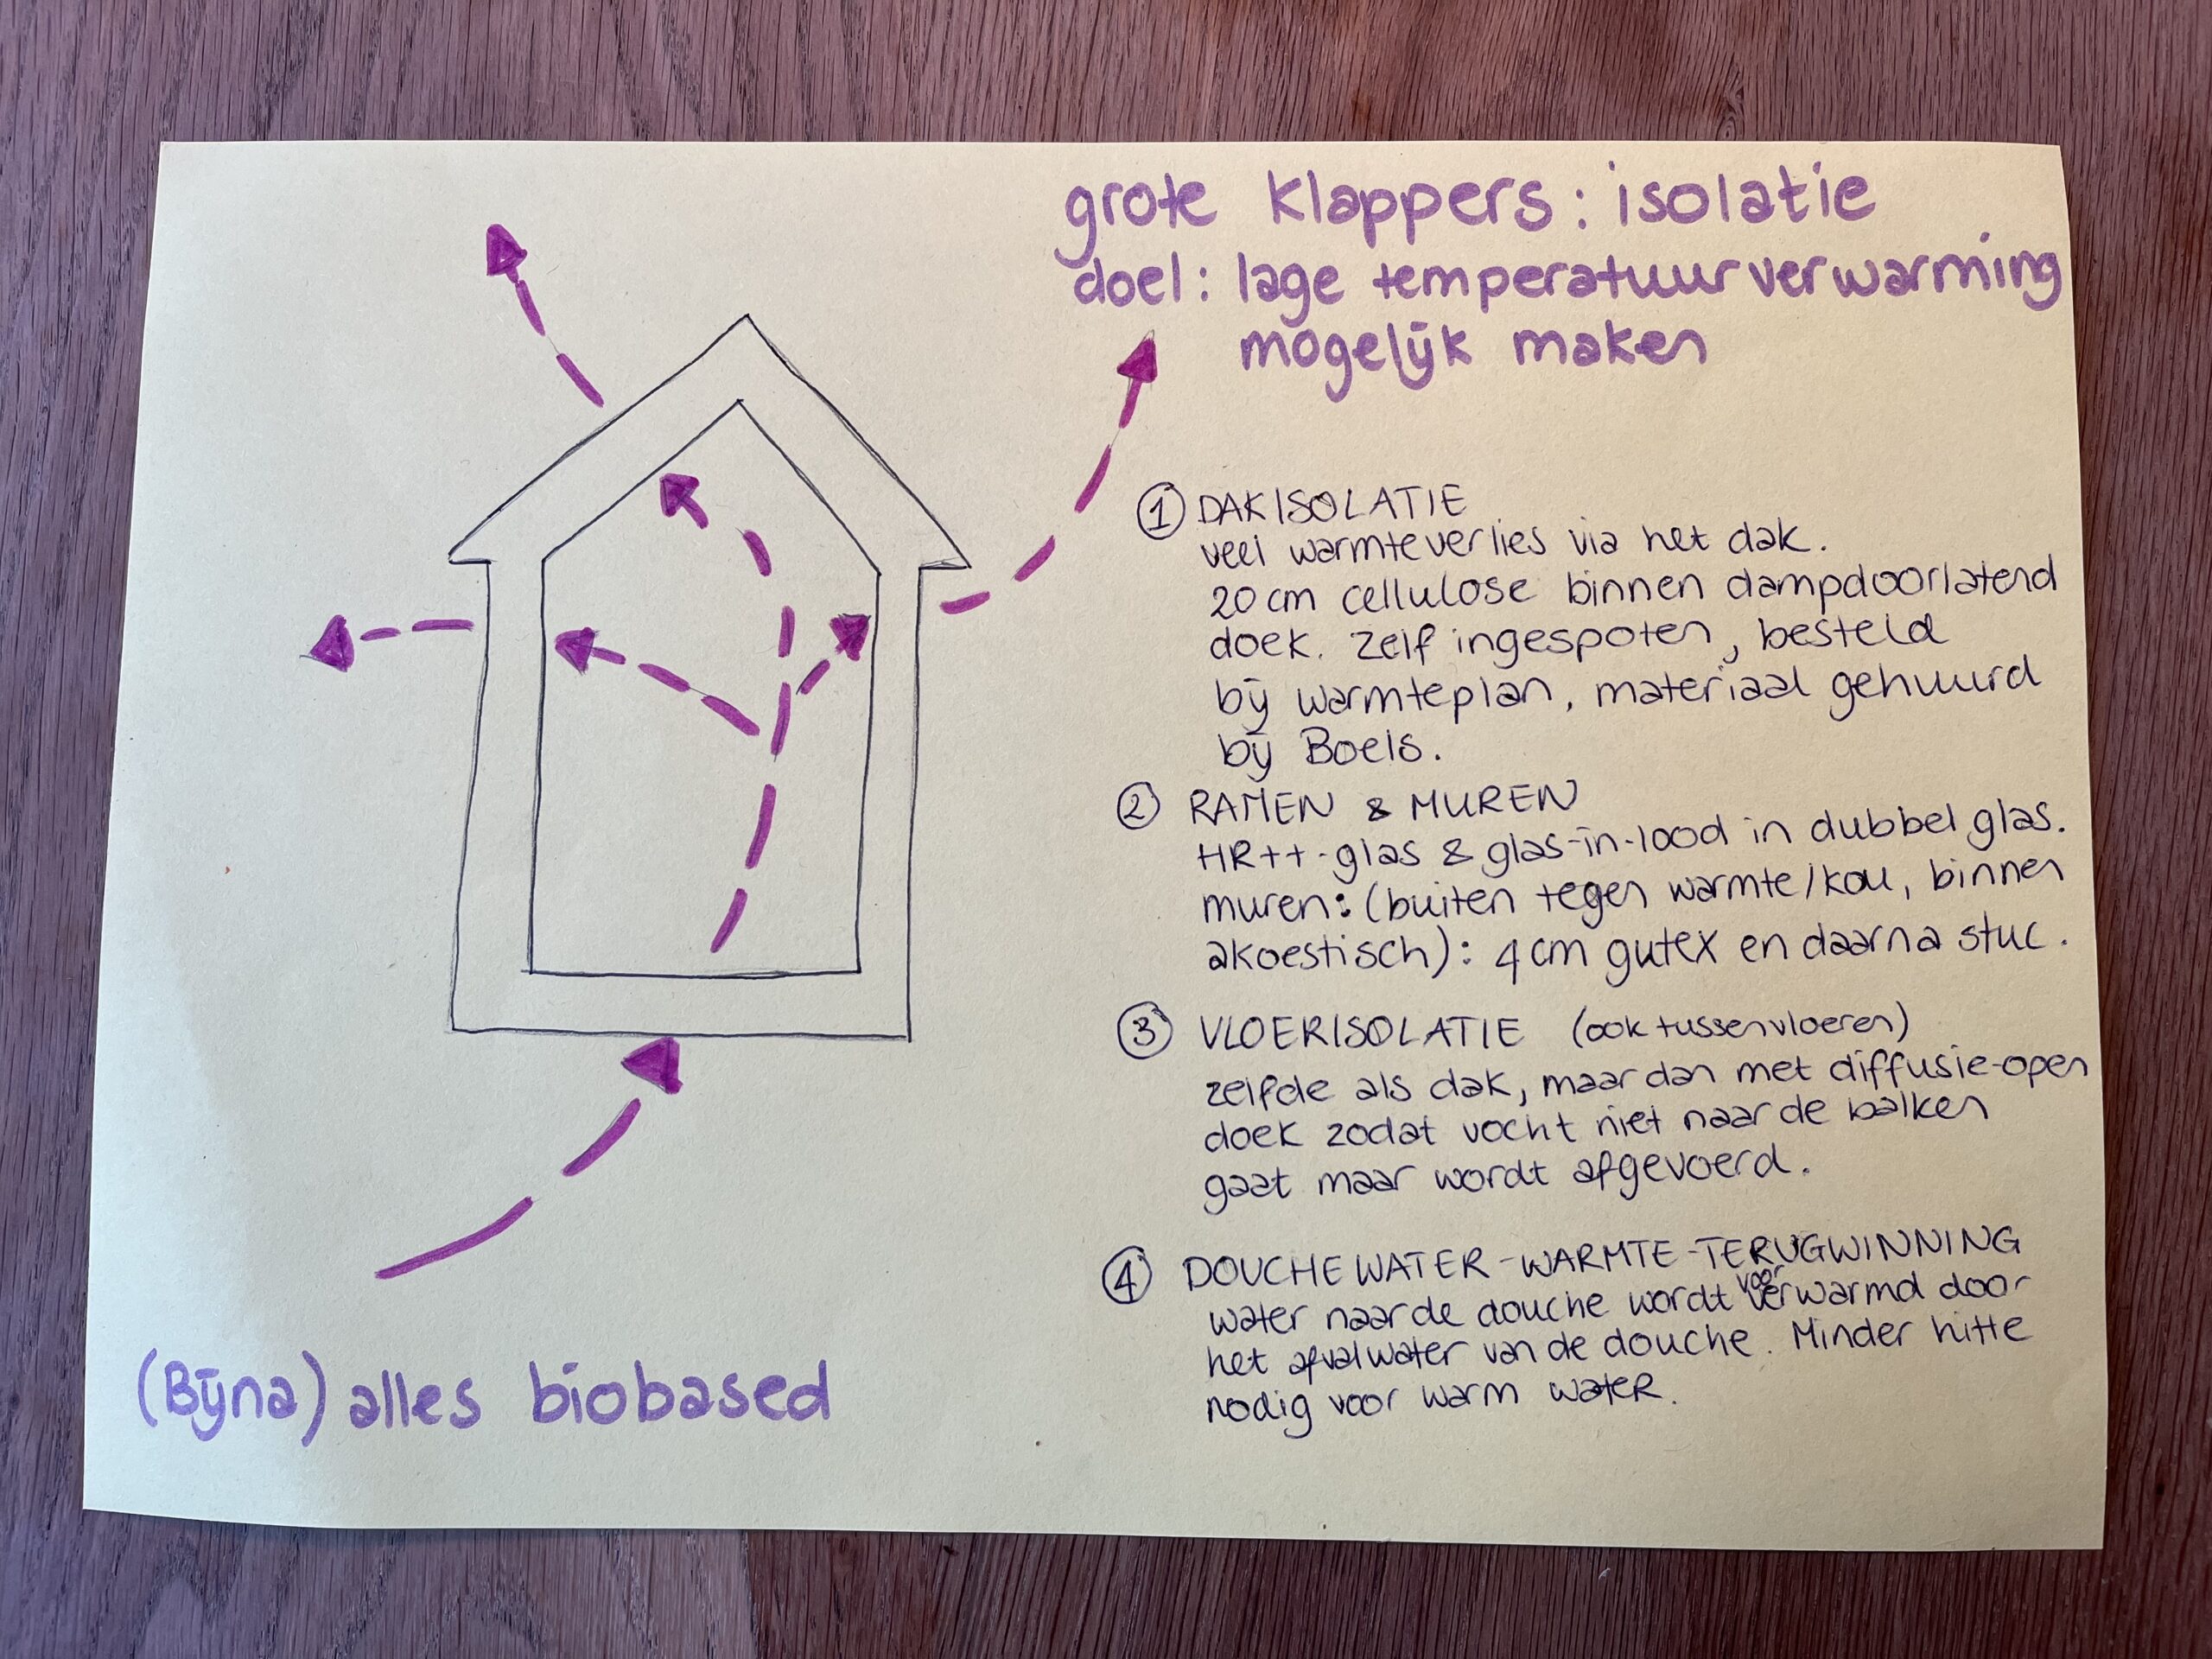 grote klappers: isolatie
doel: lage temperatuurverwarming
mogelijk maken
① DAKISOLATIE
veel warmteverlies via het dak.
20 cm cellulose binnen dampdoorlatend
doek. Zelf ingespoten, besteld
bij warmteplan, materiaal gehuurd
bij Boels.
② RAMEN & MUREN
HR++-glas & glas-in-lood in dubbel glas.
muren: (buiten tegen warmte/kou, binnen
akoestisch): 4 cm gutex en daarna stuc.
③ VLOERISOLATIE (ook tussenvloeren)
zelfde als dak, maar dan met diffusie-open
doek zodat vocht niet naar de balken
gaat maar wordt afgevoerd.
④ DOUCHEWATER-WARMTE-TERUGWINNING
water naar de douche wordt voorverwarmd door
het afvalwater van de douche. Minder hitte
nodig voor warm water.
(Bijna) alles biobased